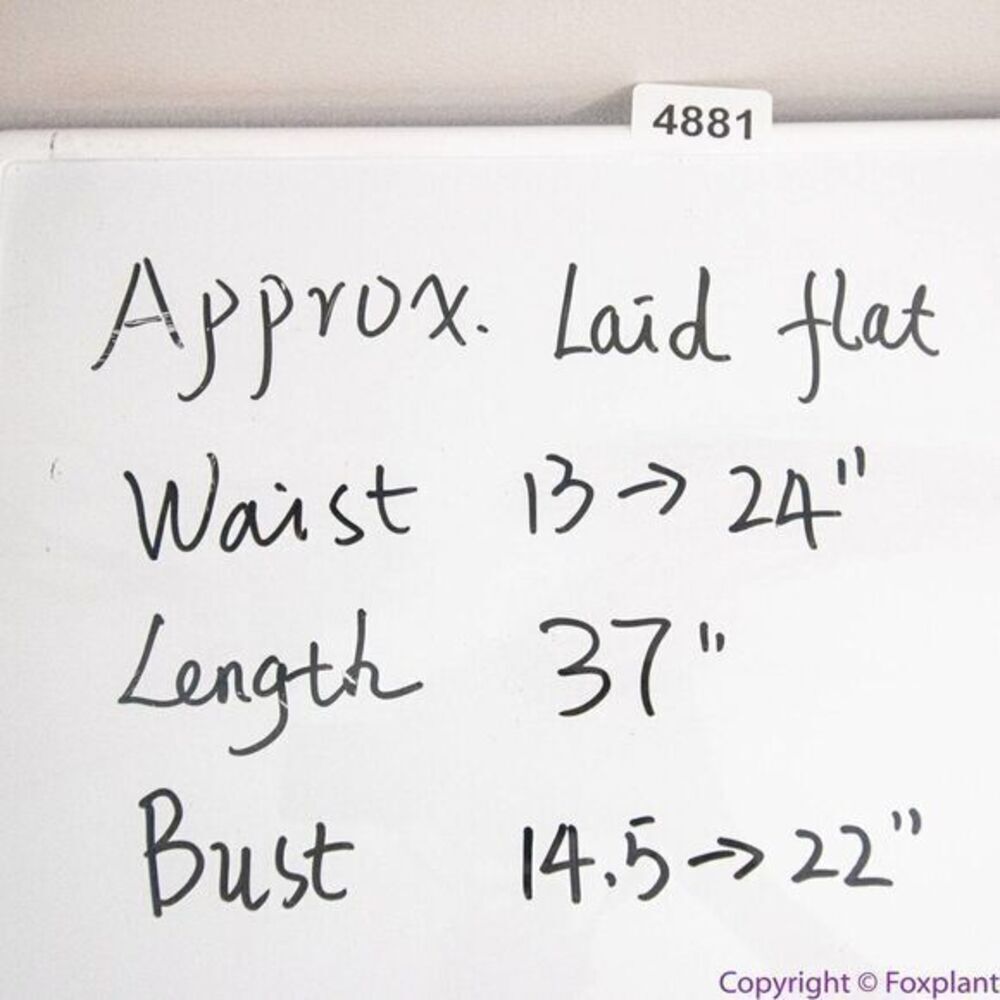 4881
Approx. Laid flat
Waist 13 → 24"
Length 37"
Bust 14.5 → 22"
Copyright © Foxplant